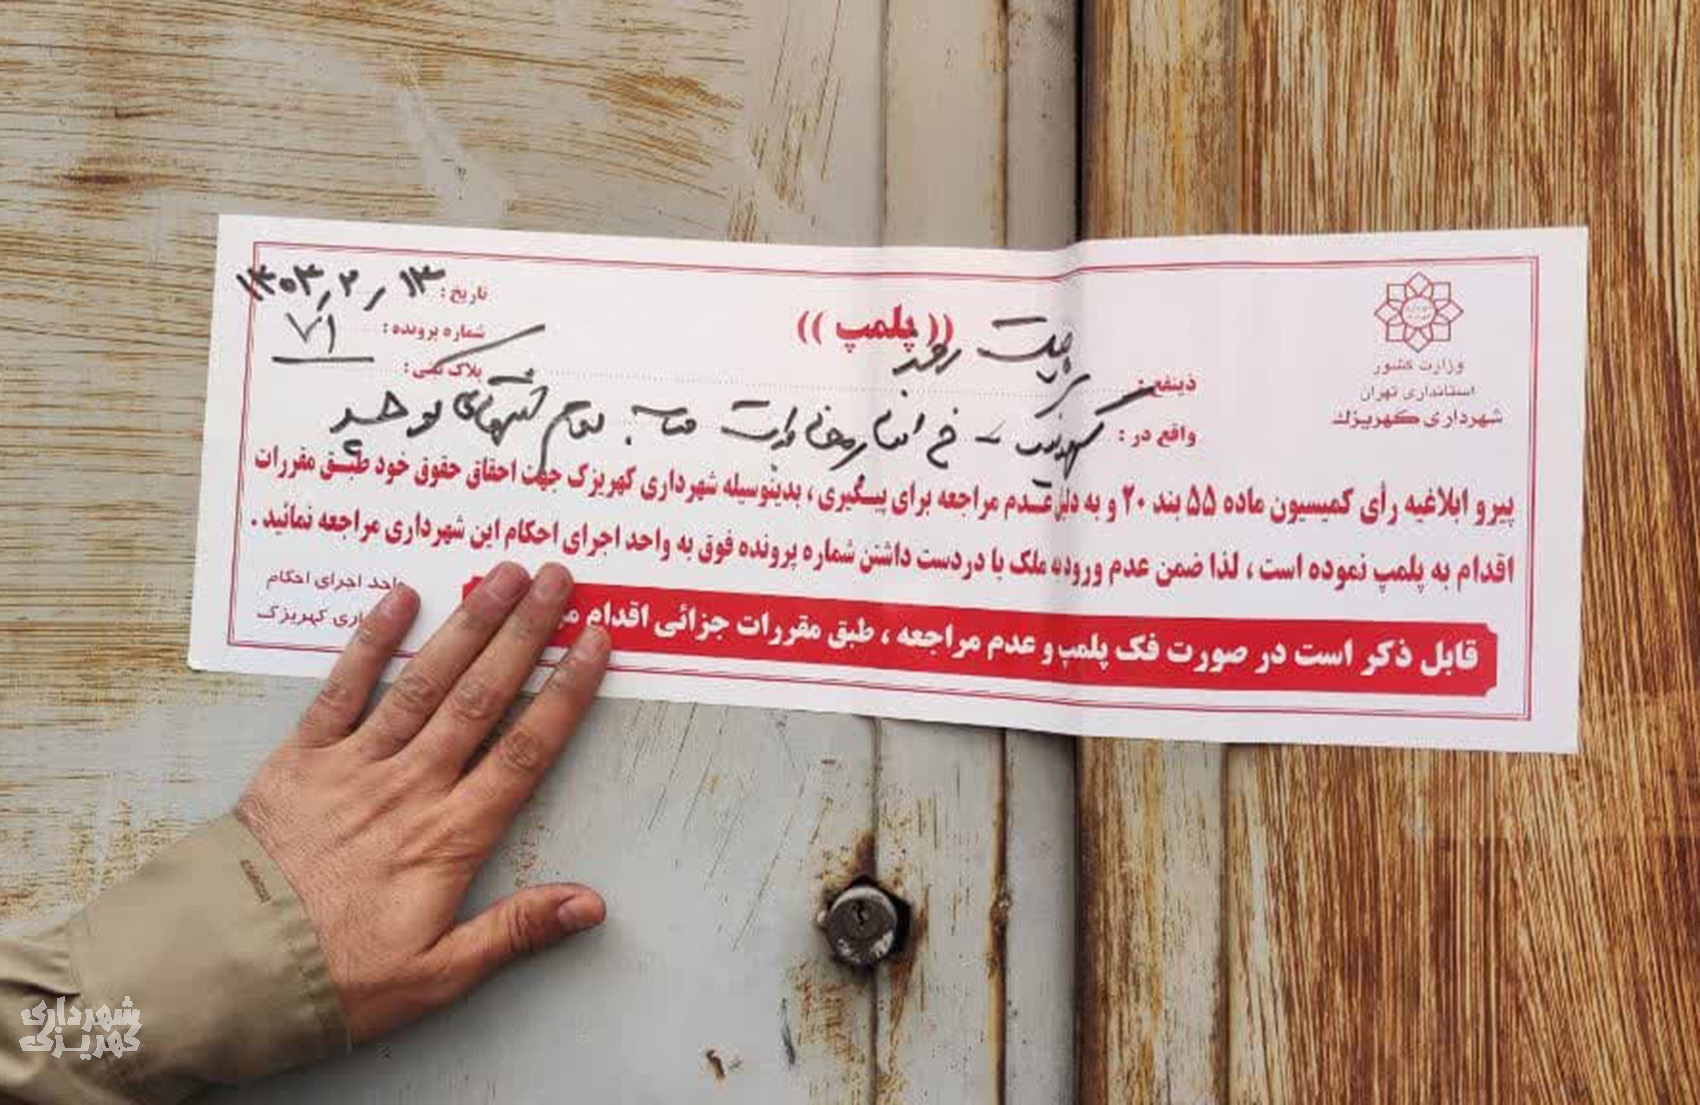 وزارت کشور
استانداری تهران
شهرداری کهریزک
(( پلمپ ))
تاریخ : ۱۴۰۳/۲/۱۳
شماره پرونده : ۷۱
پلاک ثبتی :
ذینفع :
واقع در : کهریزک
پیرو ابلاغیه رأی کمیسیون ماده ۵۵ بند ۲۰ و به دلیل عدم مراجعه برای پیگیری ، بدینوسیله شهرداری کهریزک جهت احقاق حقوق خود طبق مقررات
اقدام به پلمپ نموده است ، لذا ضمن عدم ورود به ملک با دردست داشتن شماره پرونده فوق به واحد اجرای احکام این شهرداری مراجعه نمائید .
قابل ذکر است در صورت فک پلمپ و عدم مراجعه ، طبق مقررات جزائی اقدام
واحد اجرای احکام
کهریزک
شهرداری
کهریزک